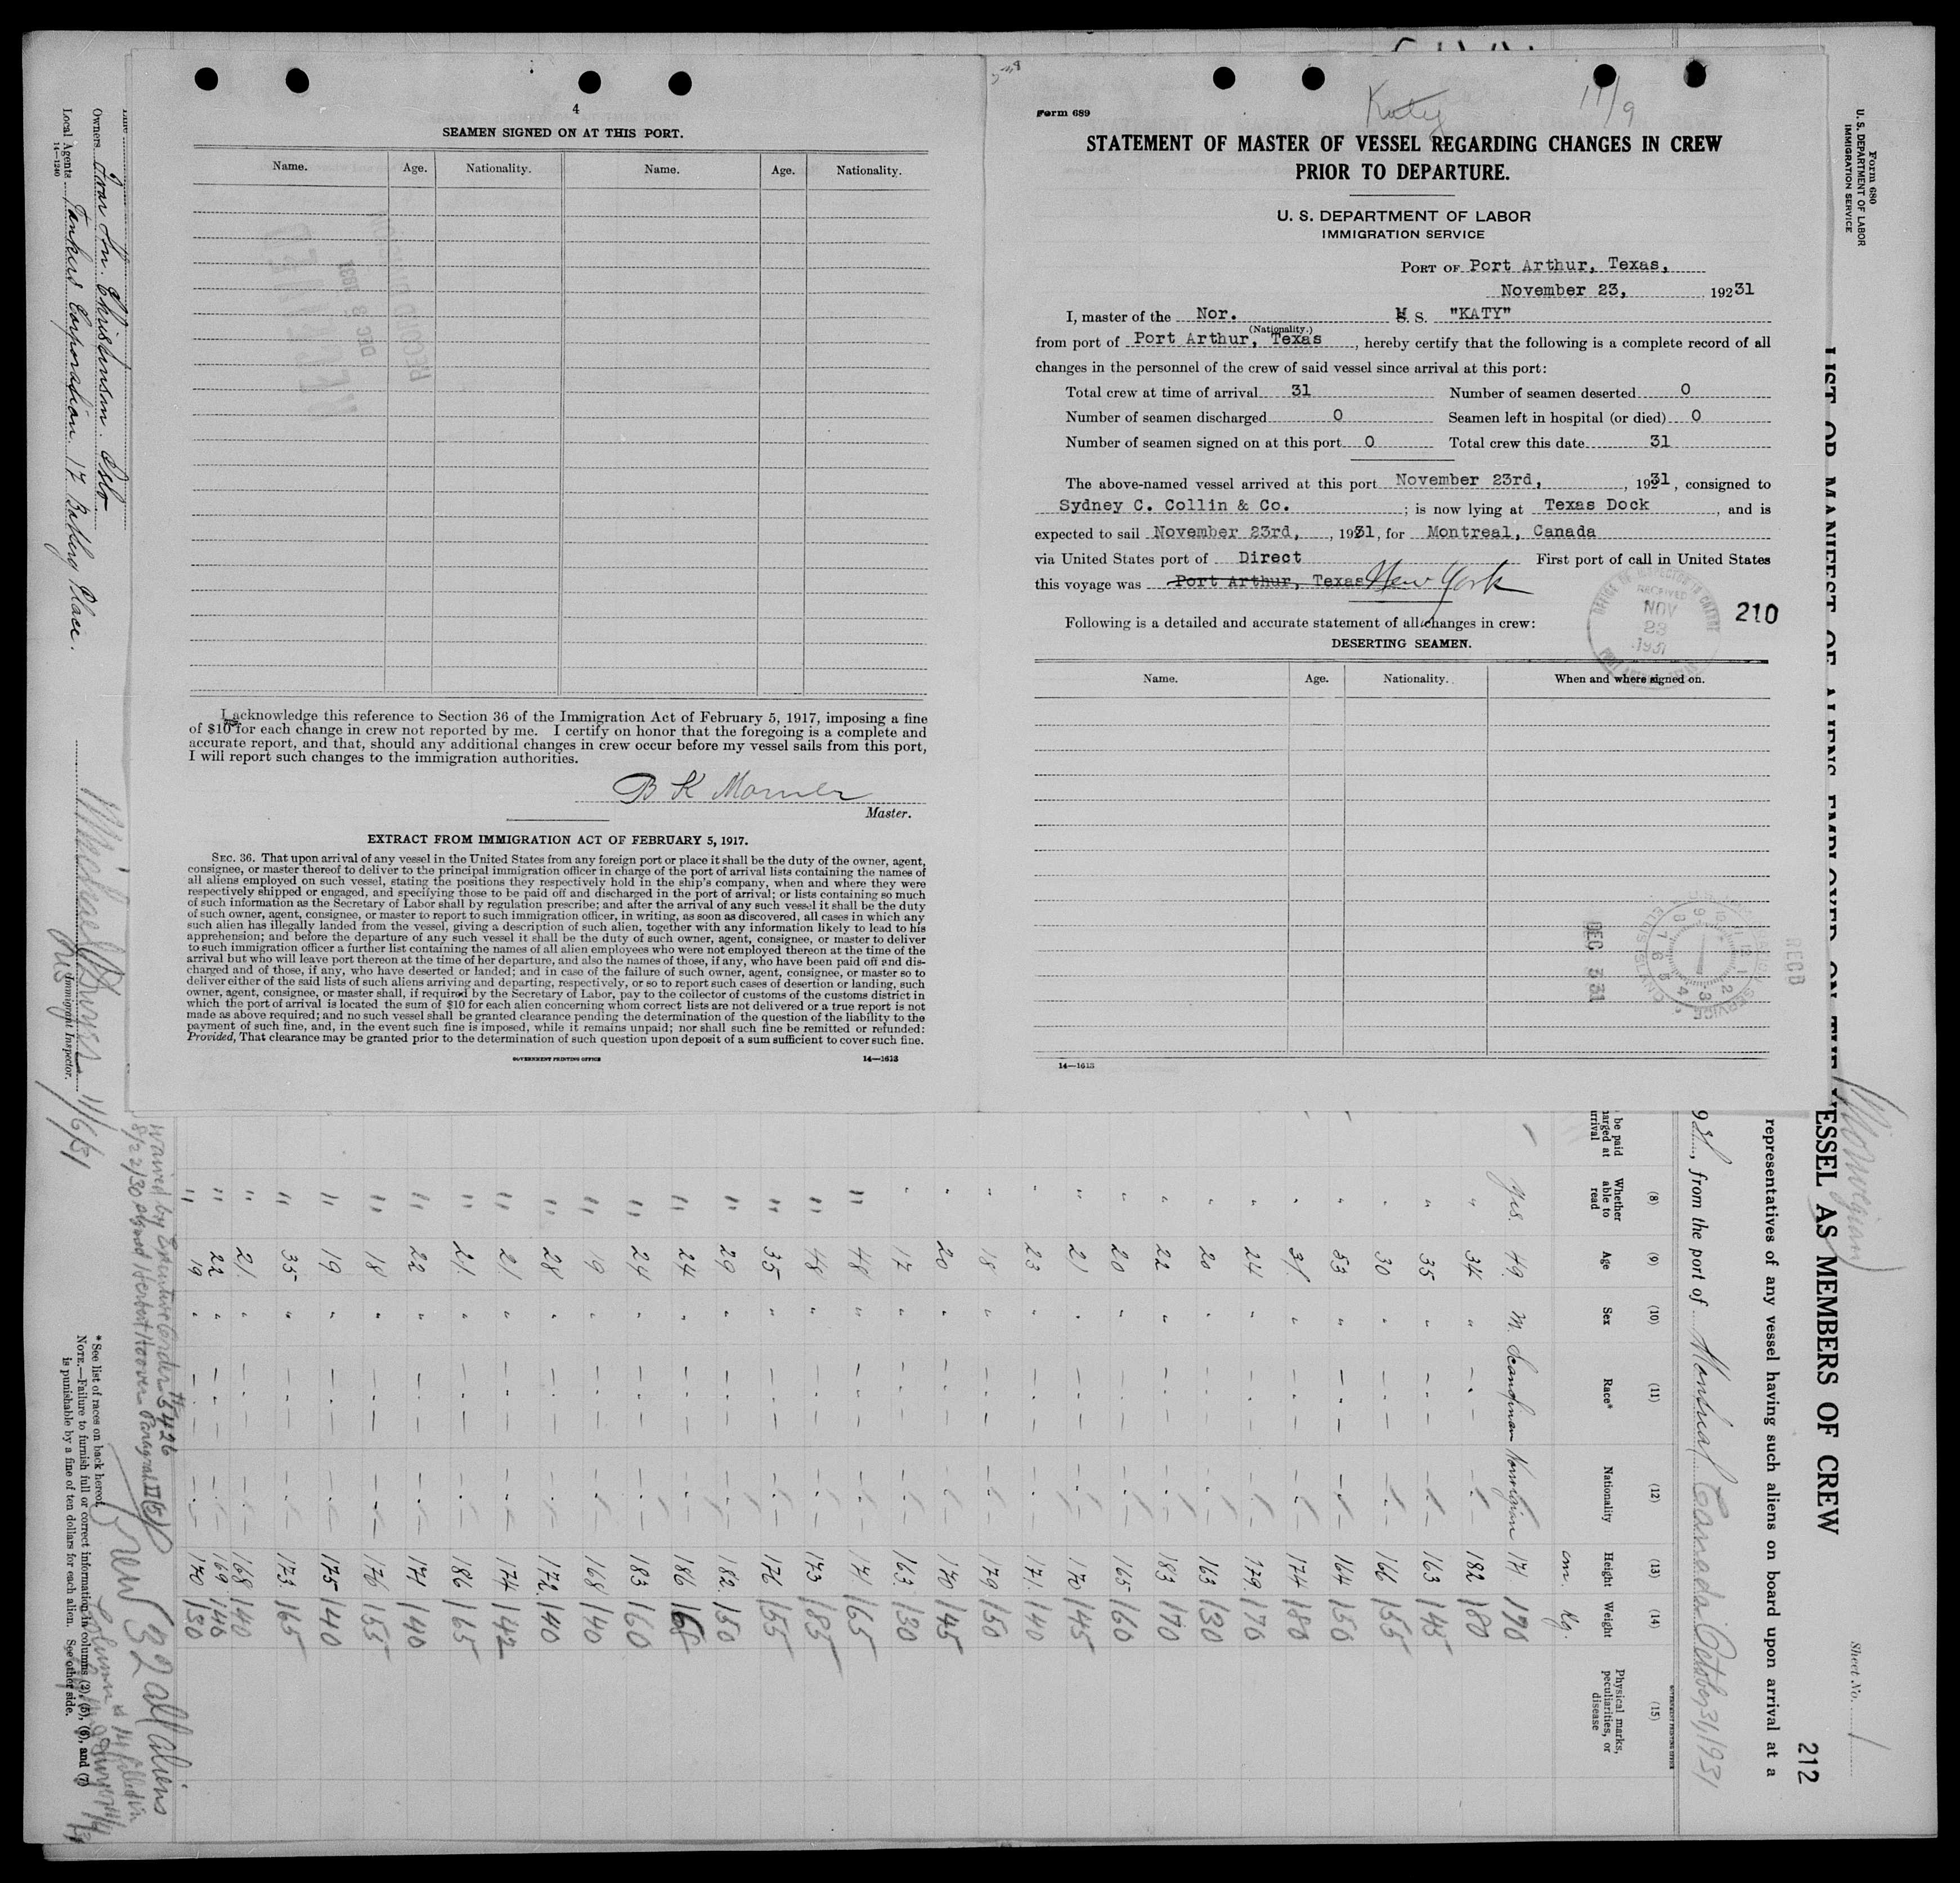 4
SEAMEN SIGNED ON AT THIS PORT.
Name. Age. Nationality. Name. Age. Nationality.
RECORD DIVISION
DEC 3 1931
I acknowledge this reference to Section 36 of the Immigration Act of February 5, 1917, imposing a fine
of $10 for each change in crew not reported by me. I certify on honor that the foregoing is a complete and
accurate report, and that, should any additional changes in crew occur before my vessel sails from this port,
I will report such changes to the immigration authorities.
Master.
EXTRACT FROM IMMIGRATION ACT OF FEBRUARY 5, 1917.
SEC. 36. That upon arrival of any vessel in the United States from any foreign port or place it shall be the duty of the owner, agent,
consignee, or master thereof to deliver to the principal immigration officer in charge of the port of arrival lists containing the names of
all aliens employed on such vessel, stating the positions they respectively hold in the ship's company, when and where they were
respectively shipped or engaged, and specifying those to be paid off and discharged in the port of arrival; or lists containing so much
of such information as the Secretary of Labor shall by regulation prescribe; and after the arrival of any such vessel it shall be the duty
of such owner, agent, consignee, or master to report to such immigration officer, in writing, as soon as discovered, all cases in which any
such alien has illegally landed from the vessel, giving a description of such alien, together with any information likely to lead to his
apprehension; and before the departure of any such vessel it shall be the duty of such owner, agent, consignee, or master to deliver
to such immigration officer a further list containing the names of all alien employees who were not employed thereon at the time of the
arrival but who will leave port thereon at the time of her departure, and also the names of those, if any, who have been paid off and dis-
charged and of those, if any, who have deserted or landed; and in case of the failure of such owner, agent, consignee, or master so to
deliver either of the said lists of such aliens arriving and departing, respectively, or so to report such cases of desertion or landing, such
owner, agent, consignee, or master shall, if required by the Secretary of Labor, pay to the collector of customs of the customs district in
which the port of arrival is located the sum of $10 for each alien concerning whom correct lists are not delivered or a true report is not
made as above required; and no such vessel shall be granted clearance pending the determination of the question of the liability to the
payment of such fine, and, in the event such fine is imposed, while it remains unpaid; nor shall such fine be remitted or refunded:
Provided, That clearance may be granted prior to the determination of such question upon deposit of a sum sufficient to cover such fine.
GOVERNMENT PRINTING OFFICE 14—1613
Katy 11/9
Form 689
STATEMENT OF MASTER OF VESSEL REGARDING CHANGES IN CREW
PRIOR TO DEPARTURE.
U. S. DEPARTMENT OF LABOR
IMMIGRATION SERVICE
PORT OF Port Arthur, Texas,
November 23, 19231
I, master of the Nor. M. S. "KATY"
(Nationality.)
from port of Port Arthur, Texas, hereby certify that the following is a complete record of all
changes in the personnel of the crew of said vessel since arrival at this port:
Total crew at time of arrival 31 Number of seamen deserted 0
Number of seamen discharged 0 Seamen left in hospital (or died) 0
Number of seamen signed on at this port 0 Total crew this date 31
The above-named vessel arrived at this port November 23rd, 1931, consigned to
Sydney C. Collin & Co. ; is now lying at Texas Dock, and is
expected to sail November 23rd, 1931, for Montreal, Canada
via United States port of Direct First port of call in United States
this voyage was Port Arthur, Texas New York
OFFICE OF INSPECTOR IN CHARGE
RECEIVED
NOV
23
1931
210
Following is a detailed and accurate statement of all changes in crew:
DESERTING SEAMEN.
Name. Age. Nationality. When and where signed on.
DEC 3 31
RECD
14—1613
Form 680
U. S. DEPARTMENT OF LABOR
IMMIGRATION SERVICE
Sheet No. 1
212
LIST OR MANIFEST OF ALIENS EMPLOYED ON THE VESSEL AS MEMBERS OF CREW
(Norwegian)
representatives of any vessel having such aliens on board upon arrival at a
from the port of Montreal Canada October 31, 1931
(8) (9) (10) (11) (12) (13) (14) (15)
Whether able to read Age Sex Race* Nationality Height Weight Physical marks, peculiarities, or disease
cm. Kg.
Yes. 49. M. Scandinav Norwegian 171 170
" 34 " — " — — " — 182 180
" 35 " — " — — " — 163 145
" 30 " — " — — " — 166 155
" 53 " — " — — " — 164 150
" 31 " — " — — " — 174 180
" 24 " — " — — " — 179 176
" 20 " — " — — " — 163 130
" 22 " — " — — " — 183 170
" 20 " — " — — " — 165 160
" 21 " — " — — " — 170 145
" 23 " — " — — " — 171 140
" 18 " — " — — " — 179 150
" 20 " — " — — " — 170 145
" 17 " — " — — " — 163 130
" 48 " — " — — " — 171 165
" 48 " — " — — " — 173 185
" 35 " — " — — " — 176 155
" 29 " — " — — " — 182 150
" 24 " — " — — " — 186 165
" 24 " — " — — " — 183 160
" 19 " — " — — " — 168 140
" 28 " — " — — " — 172 140
" 21 " — " — — " — 174 142
" 21 " — " — — " — 186 165
" 22 " — " — — " — 171 140
" 18 " — " — — " — 176 155
" 19 " — " — — " — 175 140
" 35 " — " — — " — 173 165
" 21 " — " — — " — 168 140
" 22 " — " — — " — 169 146
" 19 " — " — — " — 170 150
waived by Executive Order #5426
8/22/30 signed Herbert Hoover Paragraph II (5)
32 all aliens
Column # 14 filled in
Owners Ivar An. Christensen. Oslo
Local Agents Tankers Corporation 17 Battery Place.
14—1240
11/6/31
Immigrant Inspector.
* See list of races on back hereof.
NOTE.—Failure to furnish full or correct information in columns (2), (5), (6), and (7)
is punishable by a fine of ten dollars for each alien. See other side.